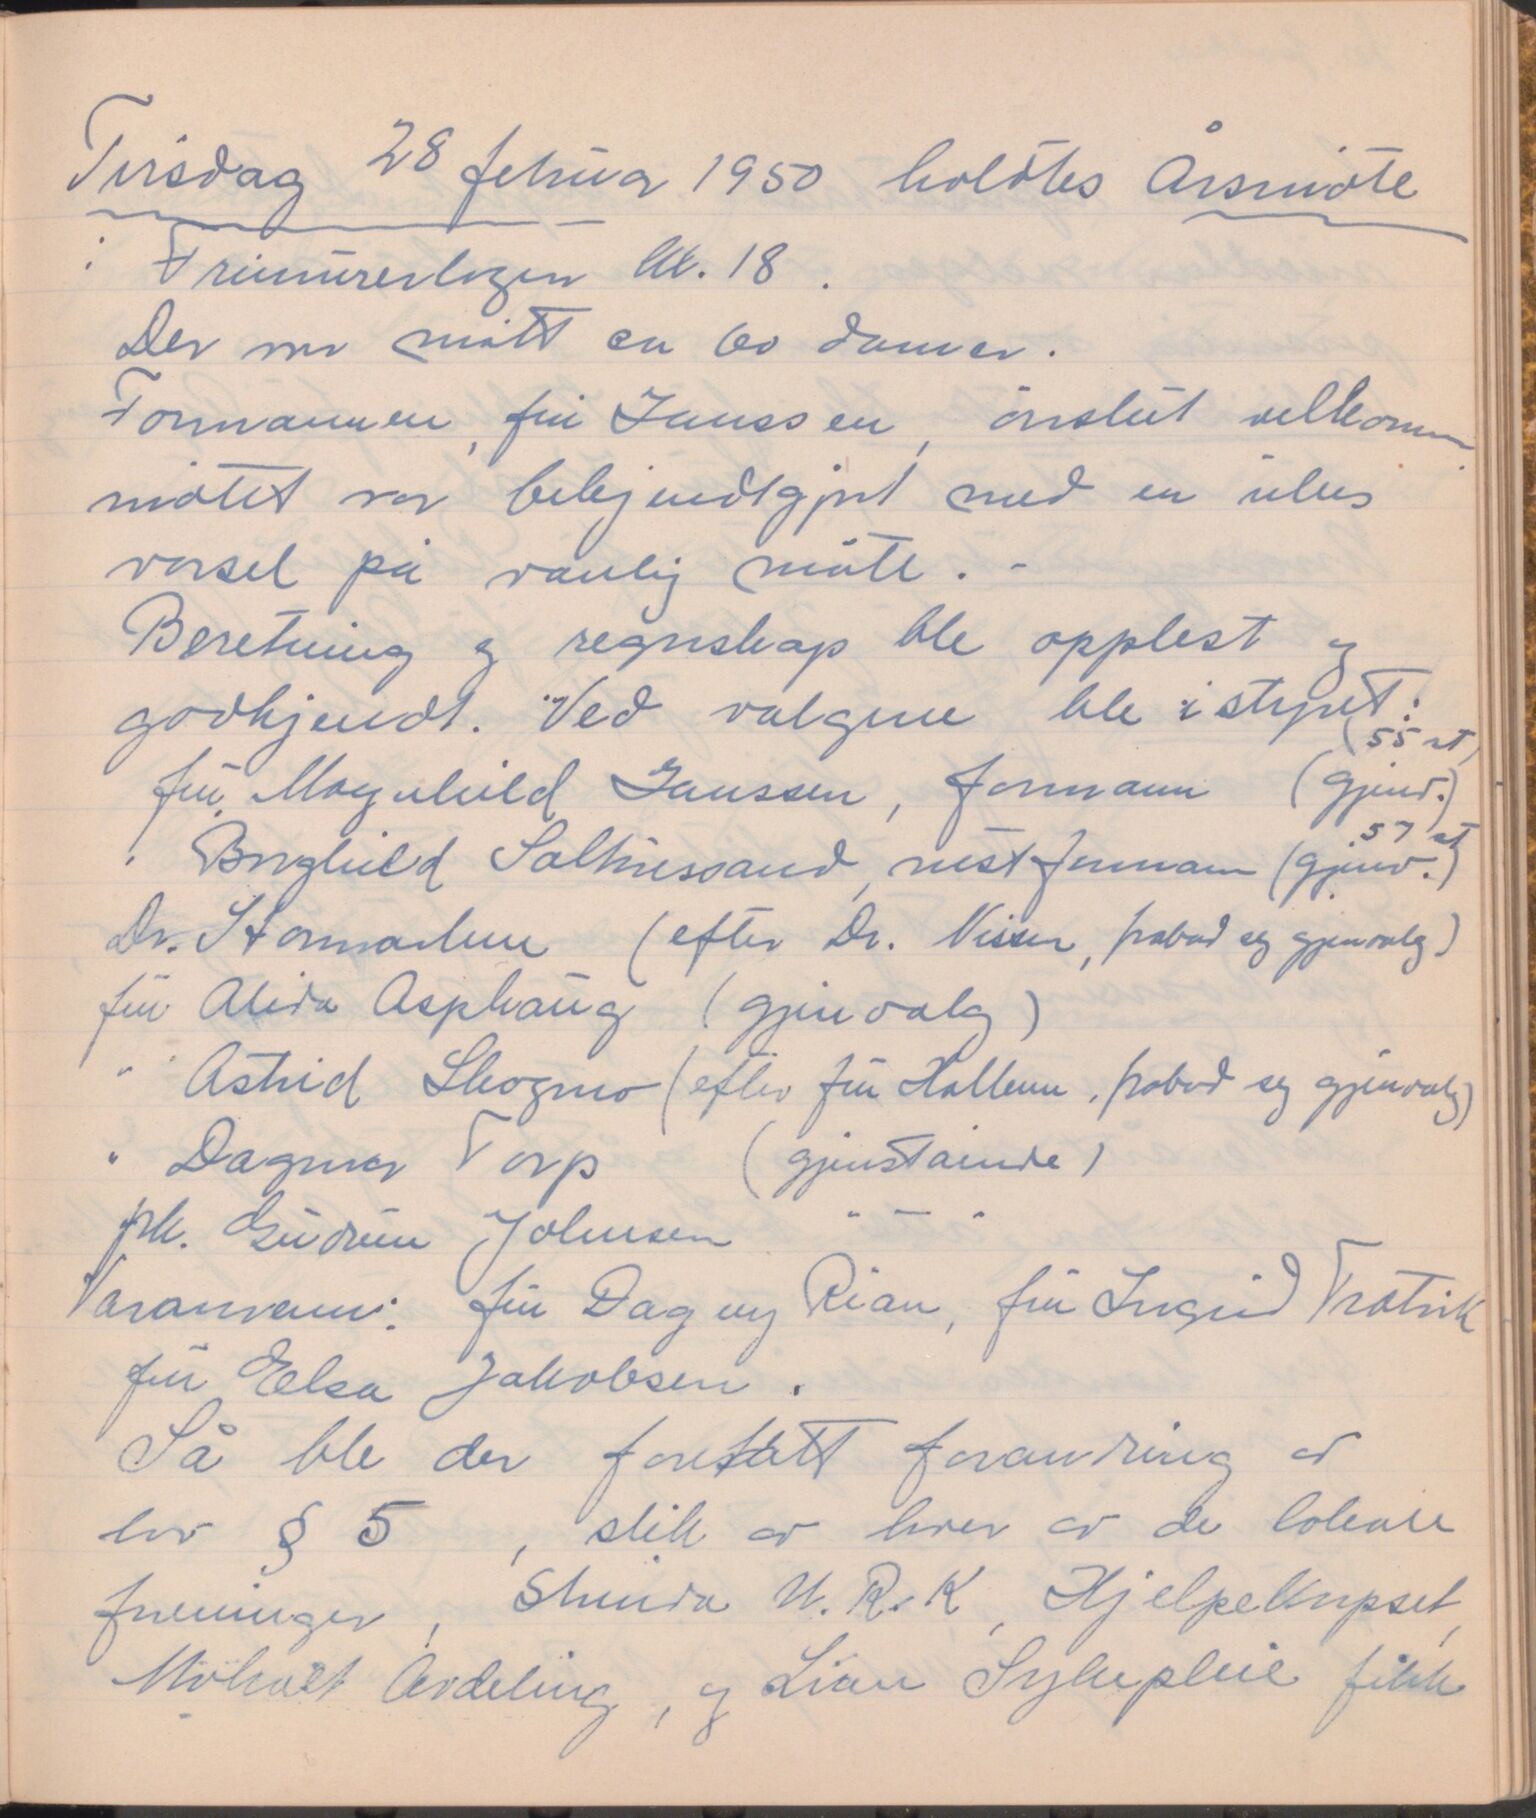 Tirsdag 28 februar 1950 holdtes Årsmöte
i Frimurerlogen kl. 18.
Der var mött ca 60 damer.
Formannen, frü Janssen, önsket velkommen
mötet var bekjendtgjort med en ukes
varsel på vanlig måte. -
Beretning og regnskap ble opplest og
godkjendt. Ved valgene ble istyret:
(55 st)
frü Magnhild Janssen, formann (gjenv.)
57 st
" Borghild Saltnessand, nestformann (gjenv.)
Dr. Stormorken (efter Dr. Nissen, frabad seg gjenvalg)
frü Alida Asphaug (gjenvalg)
" Astrid Skogmo (efter frü Hallem, frabad seg gjenvalg)
" Dagmar Torp (gjenstående)
frk. Gudrün Johnsen " — "
Varamenn: frü Dagny Rian, frü Ingrid Tratvik
frü Elsa Jakobsen.
Så ble der foretatt forandring av
lov § 5, slik at hver av de lokale
foreninger, Strinda U.R.K, Hjelpekorpset,
Mökast Avdeling, og Lian Sykepleie fikk